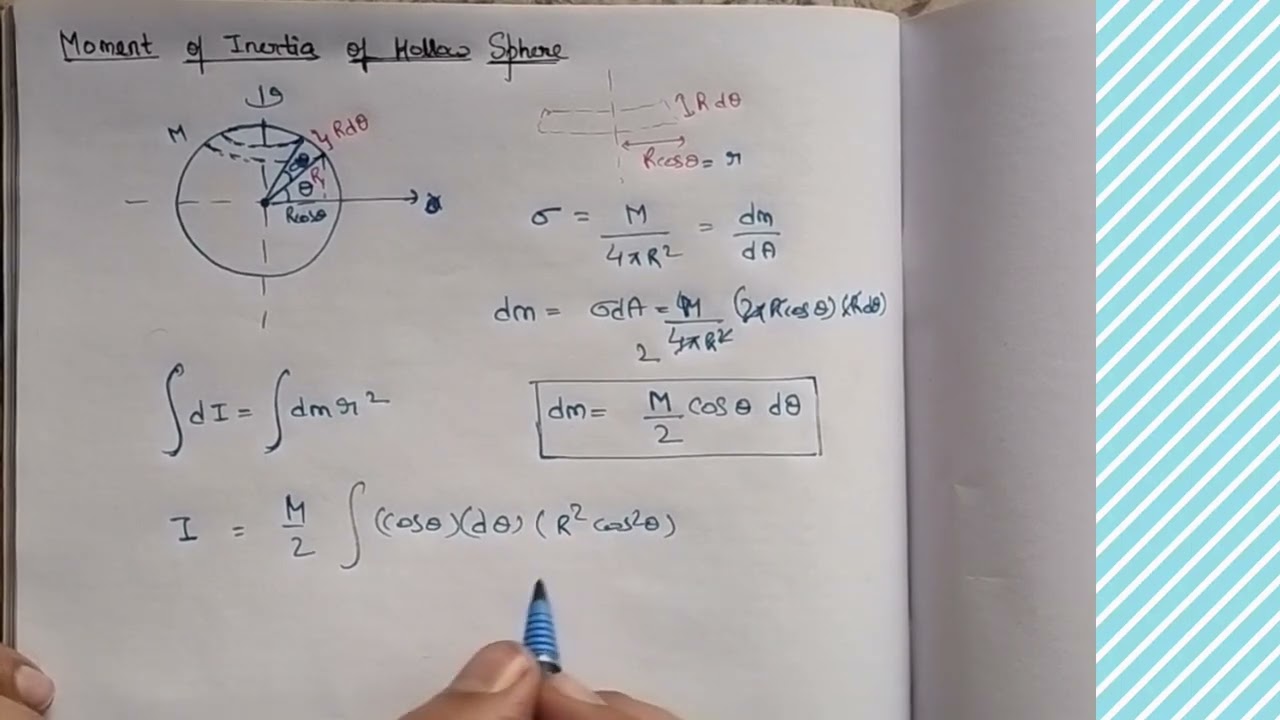 Moment of Inertia of Hollow Sphere
M
Rdθ
dθ
R
θ
Rcosθ
x
Rdθ
Rcosθ = r
σ = M/4πR² = dm/dA
dm = σdA = M/4πR² (2πRcosθ)(Rdθ)
2
∫dI = ∫dmr²
dm = M/2 cosθ dθ
I = M/2 ∫(cosθ)(dθ)(R²cos²θ)